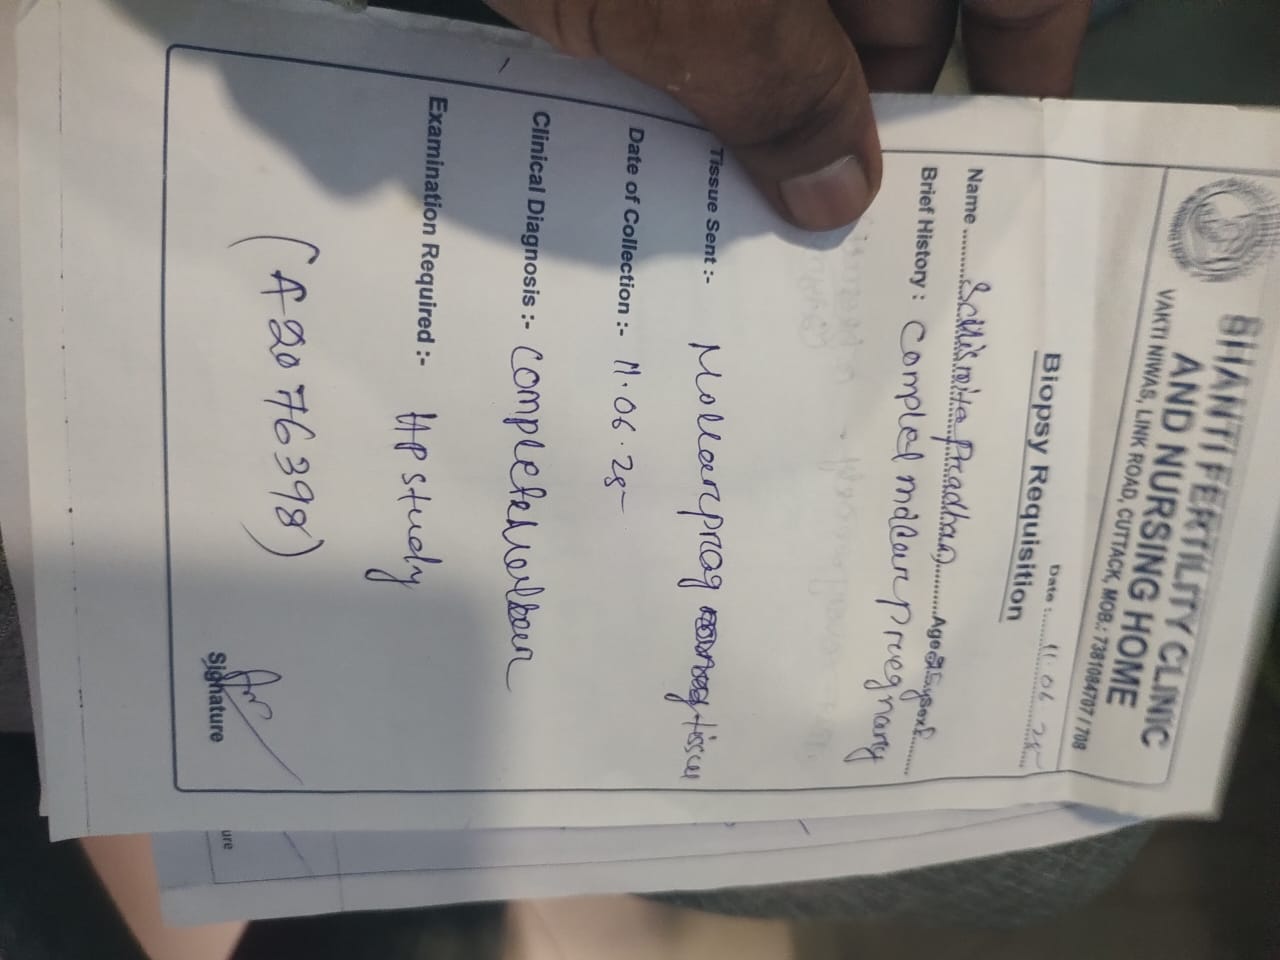 BHANTI FERTILITY CLINIC
AND NURSING HOME
VAKTI NIWAS, LINK ROAD, CUTTACK, MOB.: 7381084707 / 708
Date : 11.06.25
Biopsy Requisition
Name Pradhan Age Sex F
Brief History : Complet molar pregnancy
Tissue Sent :- Mollar preg tissue
Date of Collection :- 11.06.25
Clinical Diagnosis :- Complete
Examination Required :- HP study
(A2076398)
Signature
ure